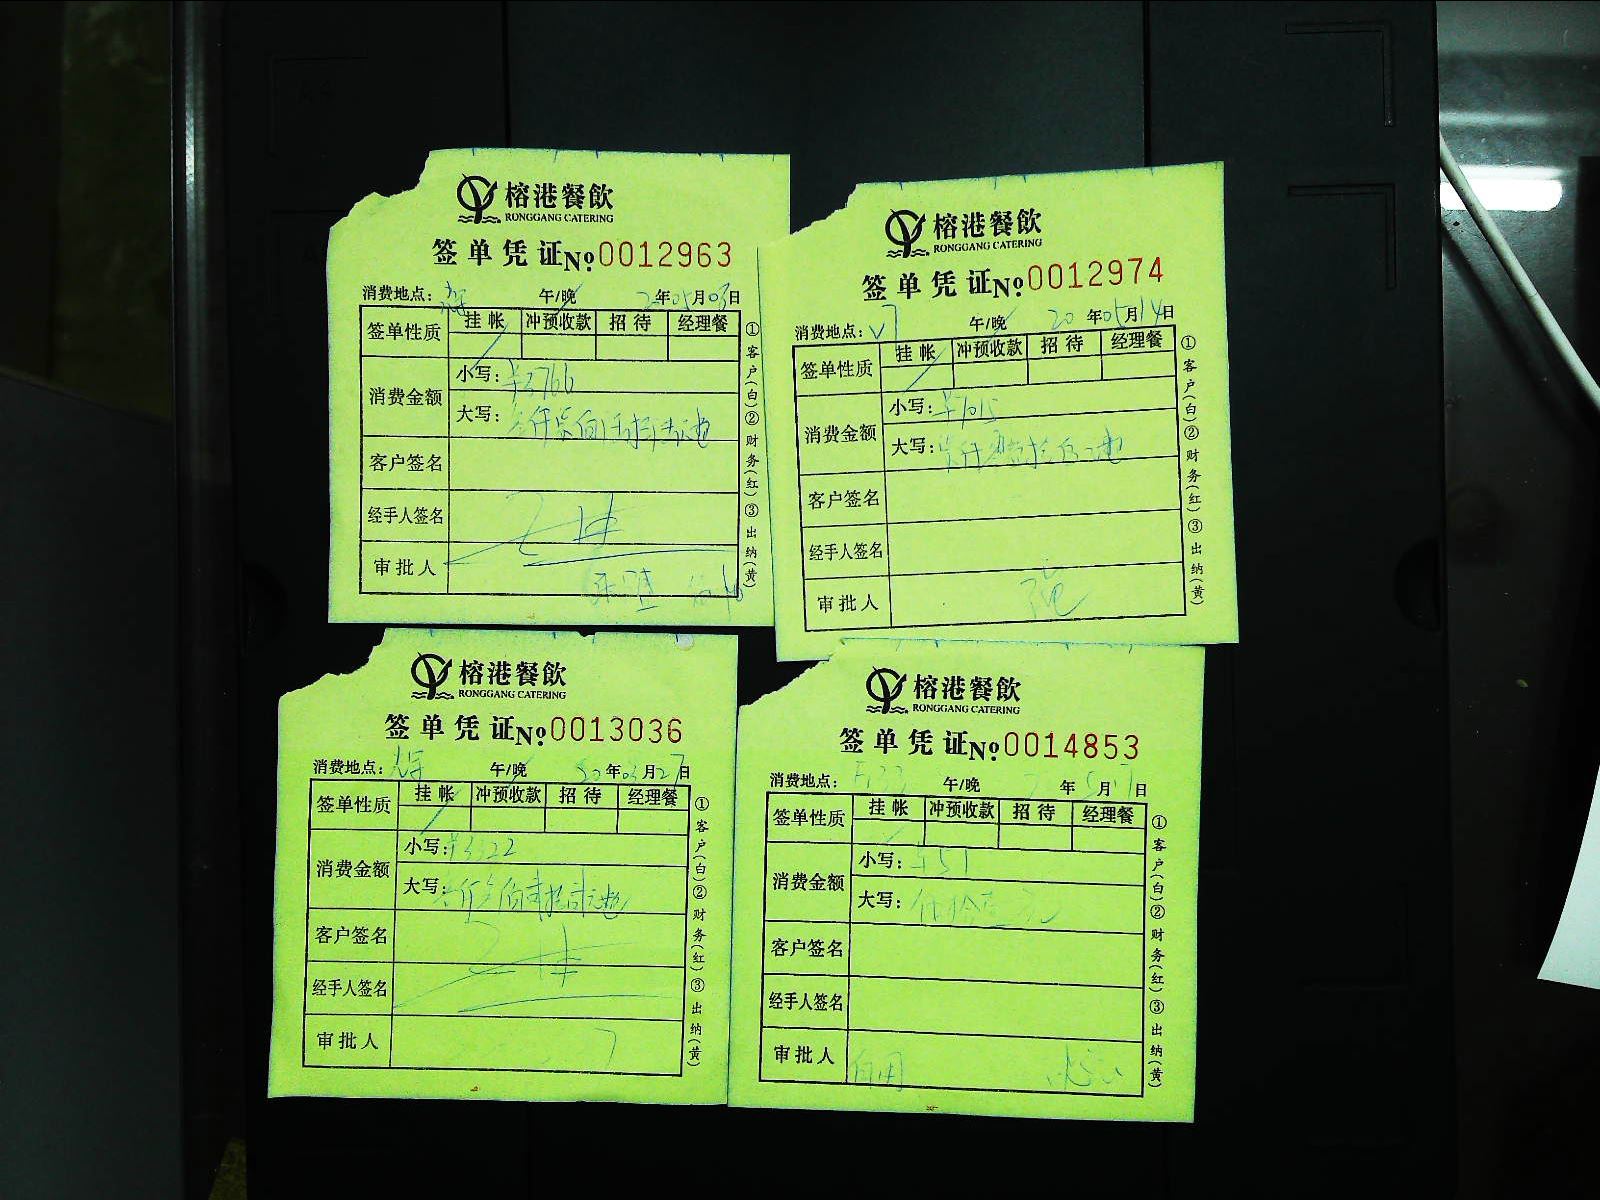 榕港餐飲
RONGGANG CATERING
签单凭证No.0012963
消费地点: 午/晚 年05月03日
签单性质 挂帐 冲预收款 招待 经理餐
消费金额 小写:
大写:
客户签名
经手人签名
审批人
①客户(白)②财务(红)③出纳(黄)
榕港餐飲
RONGGANG CATERING
签单凭证No.0012974
消费地点:V7 午/晚 20年05月14日
签单性质 挂帐 冲预收款 招待 经理餐
消费金额 小写:
大写:
客户签名
经手人签名
审批人
①客户(白)②财务(红)③出纳(黄)
榕港餐飲
RONGGANG CATERING
签单凭证No.0013036
消费地点: 午/晚 年03月27日
签单性质 挂帐 冲预收款 招待 经理餐
消费金额 小写:
大写:
客户签名
经手人签名
审批人
①客户(白)②财务(红)③出纳(黄)
榕港餐飲
RONGGANG CATERING
签单凭证No.0014853
消费地点: 午/晚 年5月17日
签单性质 挂帐 冲预收款 招待 经理餐
消费金额 小写:¥51
大写:
客户签名
经手人签名
审批人
①客户(白)②财务(红)③出纳(黄)